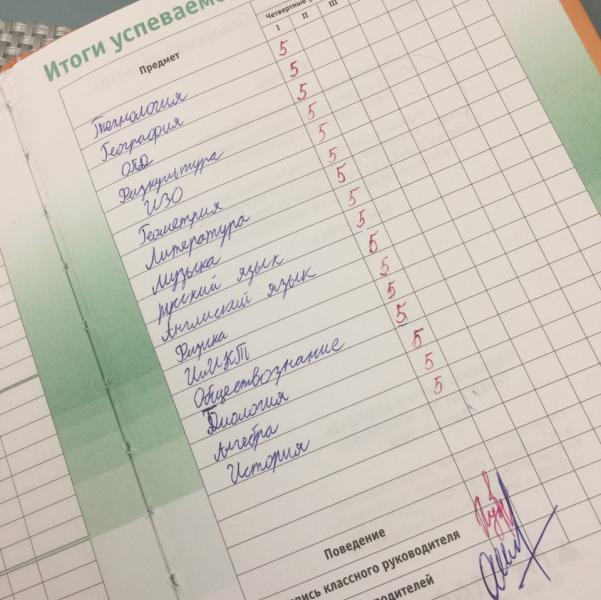 Итоги успеваемо
Предмет
Четвертные
I II III
Технология 5
География 5
5
Физкультура 5
ИЗО 5
Геометрия 5
Литература 5
Музыка 5
русский язык 5
Англиский язык 5
Физика 5
ИиИКТ 5
Обществознание 5
Биология 5
Алгебра 5
История 5
Поведение
пись классного руководителя
одителей